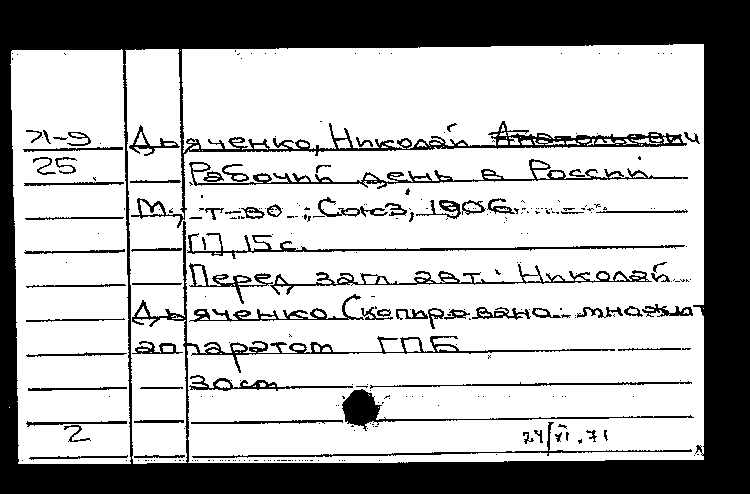 Л-9 Дьяченко, Николай Анатольевич
25 Рабочий день в России.
М., т-во "Союз", 1906.
[1], 15 с.
Перед загл. авт.: Николай
Дьяченко. Скопировано множит.
аппаратом ГПБ
30 см
2 24/XI.71